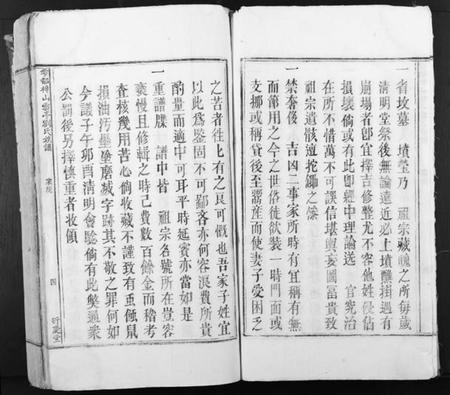 一省坟墓 墳塋乃 祖宗藏魄之所每歲
清明堂祭後無論遠近必上墳醮掛過有
崩塌者即宜擇吉修整尤不容他姓侵佔
損壞倘或有此即經中理論送 官究治
在所不惜萬不可誤信堪輿妄圖富貴致
祖宗遺骸遠挖鋤之慘
一禁奢侈 吉凶二事家所時有宜稱有無
而節用之今之世俗徒欲裝一時門面或
支挪或稱貸後至鬻産而使妻子受困乏
之苦者徃徃有之良可慨也吾家子姓宜
以此為鑒固不可鄙吝亦何容浪費所貴
酌量而適中可耳平時延賓亦當如是
一重譜牒 譜中皆 祖宗名號所在豈容
褻慢且修輯之時己費數百餘金而稽考
査核幾用苦心倘收藏不謹致有虫傷鼠
損油汚墨塗磨滅字跡其不敬之罪何如
今議子午卯酉清明會驗倘有此獘通衆
公罰後另擇慎重者收領
劉氏族譜
家規
四